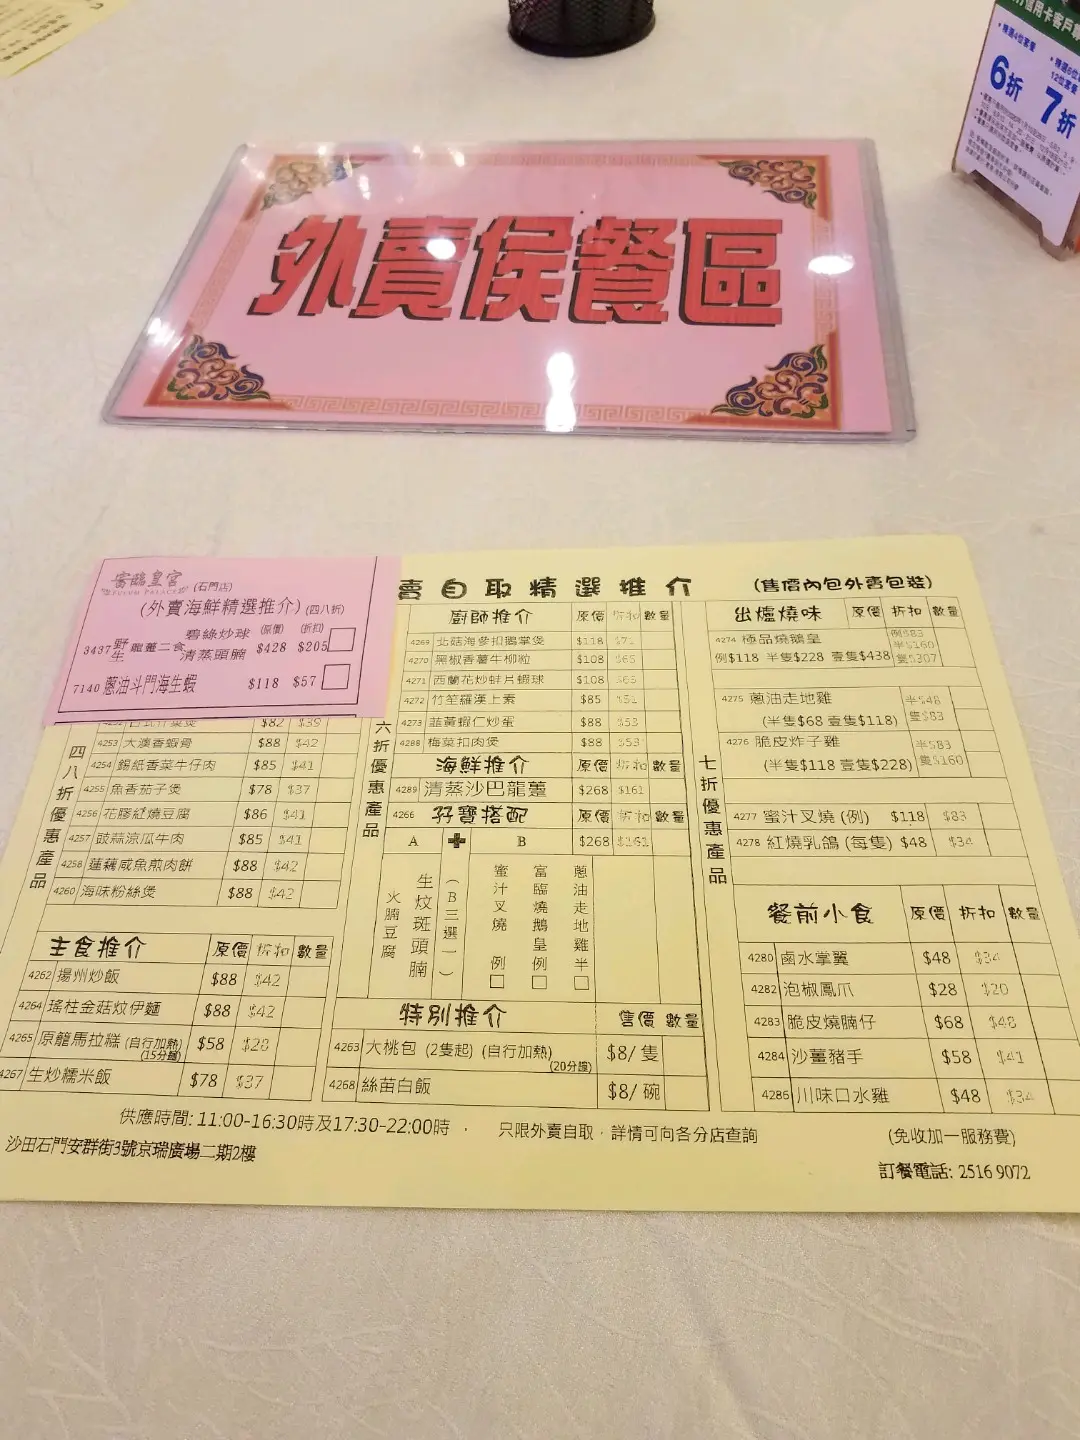 信用卡客戶
•精選4位套餐
6折
12位套餐
7折
外賣侯餐區
富臨皇宮
FULUM PALACE
(石門店)
(外賣海鮮精選推介)(四八折)
(原價) (折扣)
3437 野生龍躉二食 碧綠炒球 清蒸頭腩 $428 $205
7140 蔥油斗門海生蝦 $118 $57
賣自取精選推介
(售價內包外賣包裝)
四八折優惠產品
$82 $39
4253 大澳香蝦骨 $88 $42
4254 錫紙香菜牛仔肉 $85 $41
4255 魚香茄子煲 $78 $37
4256 花膠紅燒豆腐 $86 $41
4257 豉蒜涼瓜牛肉 $85 $41
4258 蓮藕咸魚煎肉餅 $88 $42
4260 海味粉絲煲 $88 $42
主食推介 原價 折扣 數量
4262 揚州炒飯 $88 $42
4264 瑤柱金菇炆伊麵 $88 $42
4265 原籠馬拉糕 (自行加熱) $58 $28
(15分鐘)
4267 生炒糯米飯 $78 $37
六折優惠產品
廚師推介 原價 折扣 數量
4269 北菇海參扣鵝掌煲 $118 $71
4270 黑椒香薯牛柳粒 $108 $65
4271 西蘭花炒蚌片蝦球 $108 $65
4272 竹笙羅漢上素 $85 $51
4273 韮黃蝦仁炒蛋 $88 $53
4288 梅菜扣肉煲 $88 $53
海鮮推介 原價 折扣 數量
4289 清蒸沙巴龍躉 $268 $161
4266 孖寶搭配 原價 折扣 數量
A + B $268 $161
火腩豆腐
生炆斑頭腩
(B三選一)
蜜汁叉燒 例
富臨燒鵝皇 例
蔥油走地雞 半
特別推介 售價 數量
4263 大桃包 (2隻起) (自行加熱) $8/隻
(20分鐘)
4268 絲苗白飯 $8/碗
七折優惠產品
出爐燒味 原價 折扣 數量
4274 極品燒鵝皇 例$83
半$160
例$118 半隻$228 壹隻$438 隻$307
4275 蔥油走地雞 半$48
(半隻$68 壹隻$118) 隻$83
4276 脆皮炸子雞 半$83
(半隻$118 壹隻$228) 隻$160
4277 蜜汁叉燒 (例) $118 $83
4278 紅燒乳鴿 (每隻) $48 $34
餐前小食 原價 折扣 數量
4280 鹵水掌翼 $48 $34
4282 泡椒鳳爪 $28 $20
4283 脆皮燒腩仔 $68 $48
4284 沙薑豬手 $58 $41
4286 川味口水雞 $48 $34
供應時間: 11:00-16:30時及17:30-22:00時 , 只限外賣自取，詳情可向各分店查詢 (免收加一服務費)
沙田石門安群街3號京瑞廣場二期2樓 訂餐電話: 2516 9072